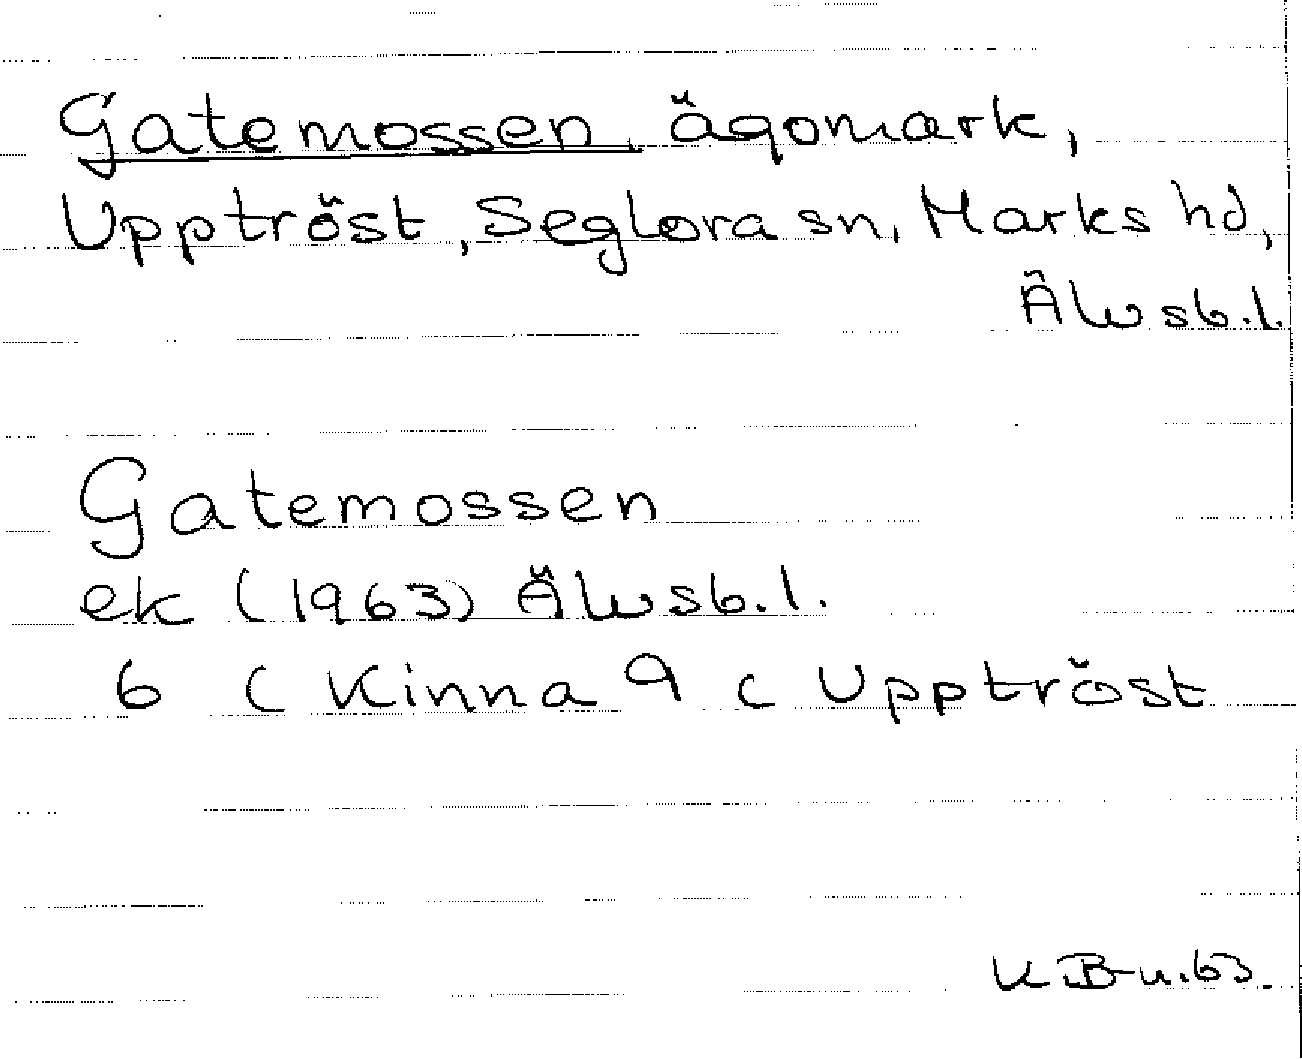 Gatemossen, ägomark,
Upptröst, Seglora sn, Marks hd,
Älvsb.l.
Gatemossen
ek (1963) Älvsb.l.
6 ( Kinna 9 ( Upptröst
K.B-n.63.